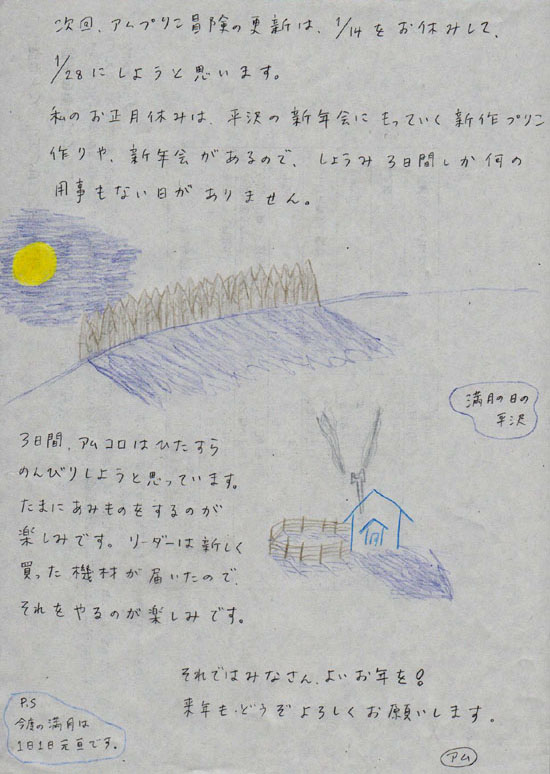 次回、アムプリン冒険の更新は、1/14をお休みして、
1/28にしようと思います。
私のお正月休みは、平沢の新年会にもっていく新作プリン
作りや、新年会があるので、しょうみ3日間しか何の
用事もない日がありません。
満月の日の
平沢
3日間、アムコロはひたすら
のんびりしようと思っています。
たまにあみものをするのが
楽しみです。リーダーは新しく
買った機材が届いたので、
それをやるのが楽しみです。
それではみなさん、よいお年を!
来年も、どうぞよろしくお願いします。
P.S
今度の満月は
1日1日元亘です。
アム